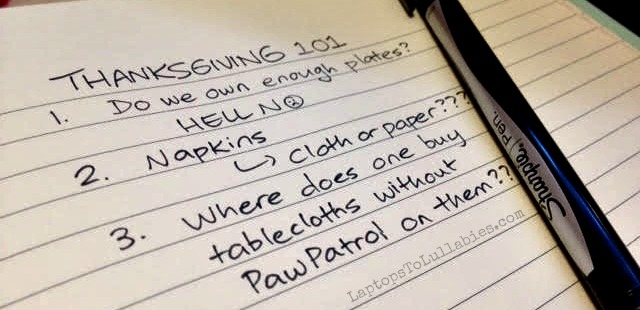 THANKSGIVING 101
1. Do we own enough plates?
HELL NO
2. Napkins
↳ Cloth or paper???
3. Where does one buy
tablecloths without
PawPatrol on them??
Sharpie. Pen.
LaptopsToLullabies.com